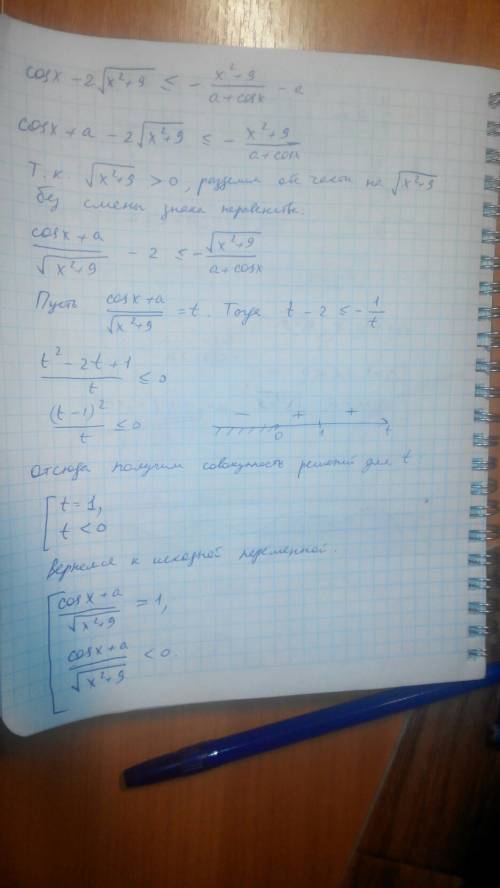 cosx - 2√(x²+9) ≤ - (x²+9)/(a+cosx) - a
cosx + a - 2√(x²+9) ≤ - (x²+9)/(a+cosx)
Т.к √(x²+9) > 0, разделим обе части на √(x²+9)
без смены знака неравенства.
(cosx+a)/√(x²+9) - 2 ≤ - √(x²+9)/(a+cosx)
Пусть (cosx+a)/√(x²+9) = t. Тогда t - 2 ≤ - 1/t
(t² - 2t + 1)/t ≤ 0
(t-1)²/t ≤ 0
- + +
0 1 t
Отсюда получим совокупность решений для t:
[ t = 1,
t < 0
Вернемся к исходной переменной.
[ (cosx+a)/√(x²+9) = 1,
(cosx+a)/√(x²+9) < 0.